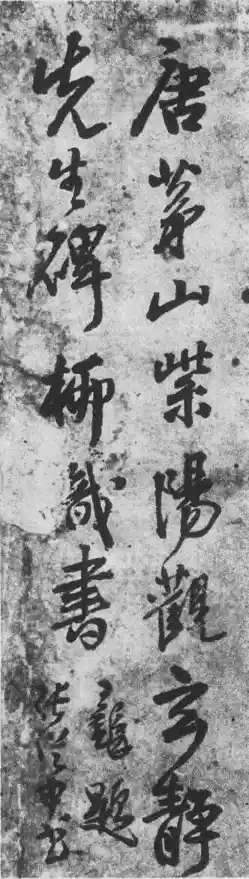 唐茅山紫陽觀玄靜
先生碑柳識書
題
張從申書